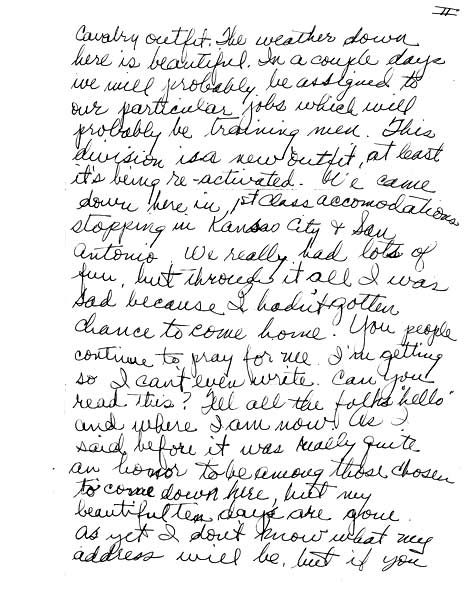 II
Cavalry outfit. The weather down
here is beautiful. In a couple days
we will probably be assigned to
our particular jobs which will
probably be training men. This
division is a new outfit, at least
it's being re-activated. We came
down here in 1st Class accomodations
stopping in Kansas City & San
Antonio. We really had lots of
fun, but through it all I was
sad because I hadn't gotten
chance to come home. You people
continue to pray for me. I'm getting
so I can't even write. Can you
read this? Tell all the folks "hello"
and where I am now. As I
said before it was really quite
an honor to be among those chosen
to come down here, but my
beautiful ten days are gone.
As yet I don't know what my
address will be, but if you